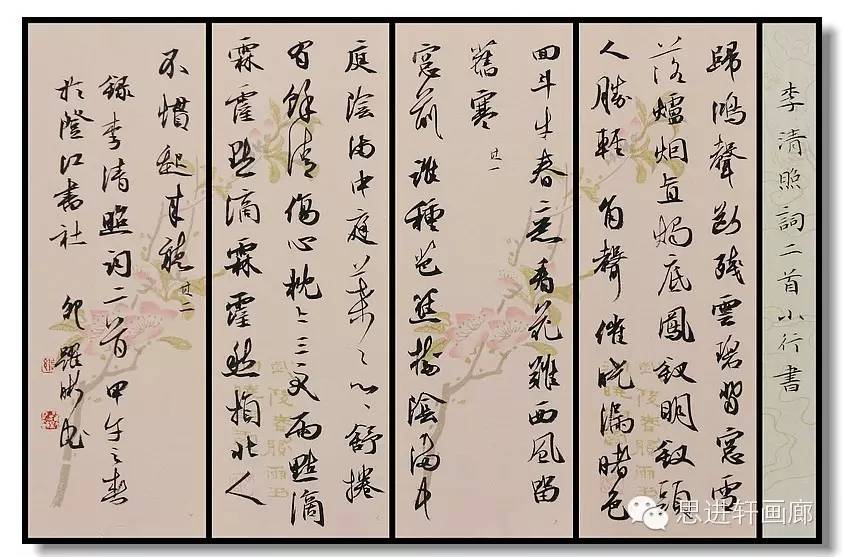 李清照詞二首小行書
歸鴻聲斷殘雲碧背窗雪
落爐烟直燭底鳳釵明釵頭
人勝輕 角聲催曉漏曙色
回斗牛春意看花難西風留
舊寒 其一
窗前誰種芭蕉樹陰滿中
庭陰滿中庭葉〻心〻舒捲
有餘情傷心枕上三更雨點滴
霖霪點滴霖霪愁損北人
不慣起來聽 其二
錄李清照詞二首甲午之春
於澄江書社
思进轩画廊